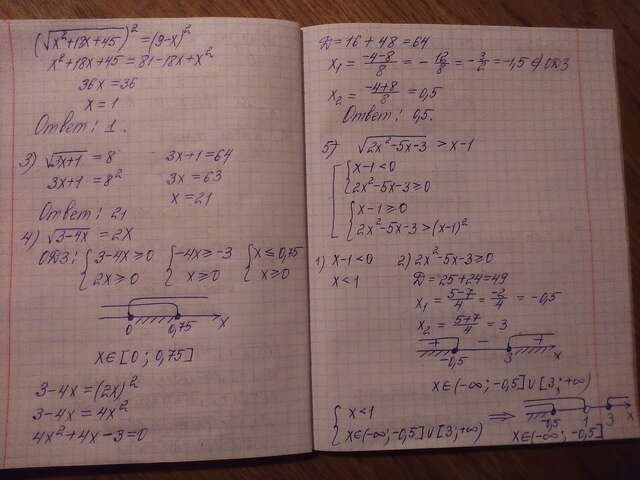 (√x²+18x+45)² = (9-x)²
x²+18x+45 = 81-18x+x²
36x = 36
x = 1
Ответ: 1.
3) √3x+1 = 8
3x+1 = 8²
3x+1 = 64
3x = 63
x = 21
Ответ: 21
4) √3-4x = 2x
ОДЗ: {3-4x ≥ 0 {-4x ≥ -3 {x ≤ 0,75
2x ≥ 0 x ≥ 0 x ≥ 0
0 0,75 x
x∈[0; 0,75]
3-4x = (2x)²
3-4x = 4x²
4x²+4x-3=0
Д = 16 + 48 = 64
x₁ = -4-8/8 = -12/8 = -3/2 = -1,5 ∉ ОДЗ
x₂ = -4+8/8 = 0,5
Ответ: 0,5.
5) √2x²-5x-3 > x-1
[{x-1<0
2x²-5x-3≥0
{x-1≥0
2x²-5x-3>(x-1)²
1) x-1<0
x<1
2) 2x²-5x-3≥0
Д = 25+24=49
x₁ = 5-7/4 = -2/4 = -0,5
x₂ = 5+7/4 = 3
+ - +
-0,5 3 x
x∈(-∞; -0,5]∪[3; +∞)
{x<1
x∈(-∞; -0,5]∪[3; +∞)
⇒
-0,5 1 3 x
x∈(-∞; -0,5]